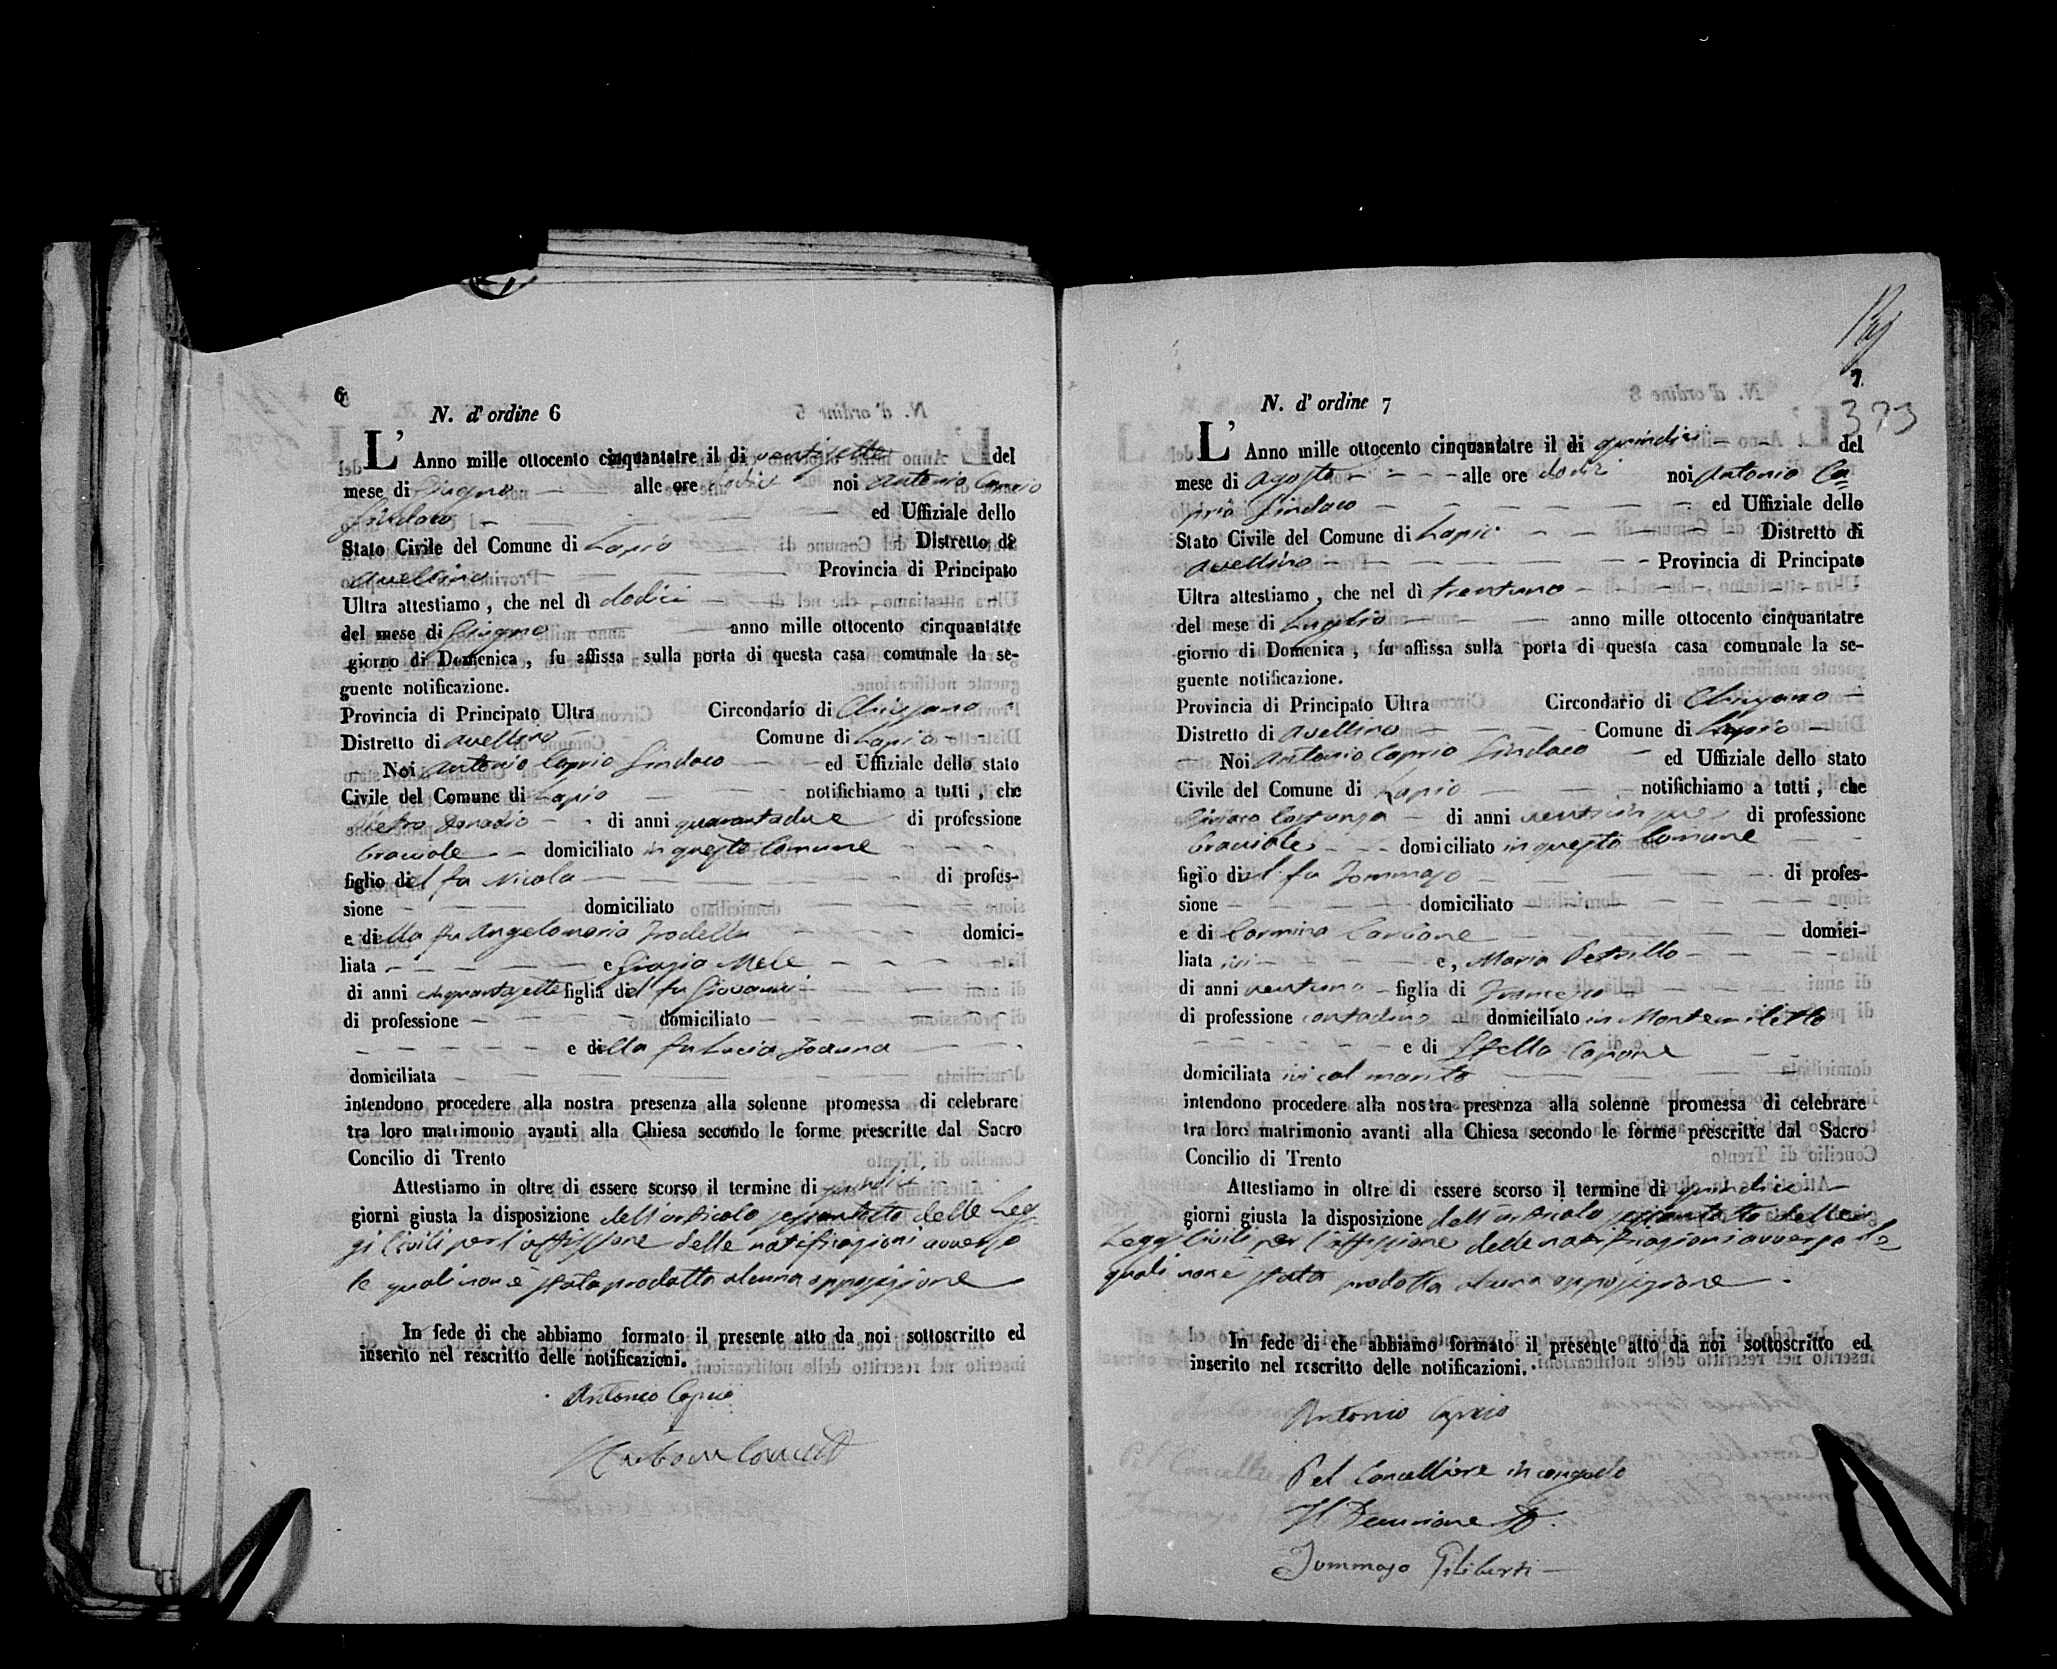 6
N. d' ordine 6
L' Anno mille ottocento cinquantatre il di ventisette del
mese di Giugno alle ore dodici noi Antonio Caprio
Sindaco ed Uffiziale dello
Stato Civile del Comune di Lapio Distretto di
Avellino Provincia di Principato
Ultra attestiamo, che nel dì dodici
del mese di Giugno anno mille ottocento cinquantatre
giorno di Domenica, fu affissa sulla porta di questa casa comunale la se-
guente notificazione.
Provincia di Principato Ultra Circondario di Chiusano
Distretto di Avellino Comune di Lapio
Noi Antonio Caprio Sindaco ed Uffiziale dello stato
Civile del Comune di Lapio notifichiamo a tutti, che
Pietro Donadio di anni quarantadue di professione
bracciale domiciliato in questo Comune
figlio del fu Nicola di profes-
sione domiciliato
e della fu Angelamaria domici-
liata e Mele
di anni cinquantasette figlia del fu Giovanni
di professione domiciliato
e della fu Lucia
domiciliata
intendono procedere alla nostra presenza alla solenne promessa di celebrare
tra loro matrimonio avanti alla Chiesa secondo le forme prescritte dal Sacro
Concilio di Trento
Attestiamo in oltre di essere scorso il termine di quindici
giorni giusta la disposizione dell'articolo sessantotto delle Leg-
gi Civili per l'affissione delle notificazioni avverso
le quali non è stata prodotta alcuna opposizione
In fede di che abbiamo formato il presente atto da noi sottoscritto ed
inserito nel rescritto delle notificazioni.
Antonio Caprio
7
373
N. d' ordine 7
L' Anno mille ottocento cinquantatre il di quindici del
mese di Agosto alle ore dodici noi Antonio Ca=
prio Sindaco ed Uffiziale dello
Stato Civile del Comune di Lapio Distretto di
Avellino Provincia di Principato
Ultra attestiamo, che nel dì trentuno
del mese di Luglio anno mille ottocento cinquantatre
giorno di Domenica, fu affissa sulla porta di questa casa comunale la se-
guente notificazione.
Provincia di Principato Ultra Circondario di Chiusano
Distretto di Avellino Comune di Lapio
Noi Antonio Caprio Sindaco ed Uffiziale dello stato
Civile del Comune di Lapio notifichiamo a tutti, che
Ciriaco Costanza di anni venticinque di professione
bracciale domiciliato in questo Comune
figlio del fu Tommaso di profes-
sione domiciliato
e di Carmina Carbone domici-
liata ivi e, Maria Petrillo
di anni ventuno figlia di Francesco
di professione contadino domiciliato in Montemiletto
e di Stella Capone
domiciliata ivi col marito
intendono procedere alla nostra presenza alla solenne promessa di celebrare
tra loro matrimonio avanti alla Chiesa secondo le forme prescritte dal Sacro
Concilio di Trento
Attestiamo in oltre di essere scorso il termine di quindici
giorni giusta la disposizione dell'articolo sessantotto delle
Leggi Civili per l'affissione delle notificazioni avverso le
quali non è stata prodotta alcuna opposizione
In fede di che abbiamo formato il presente atto da noi sottoscritto ed
inserito nel rescritto delle notificazioni.
Antonio Caprio
Pel Cancelliere in congedo
Il Decurione
Tommaso Filiberti